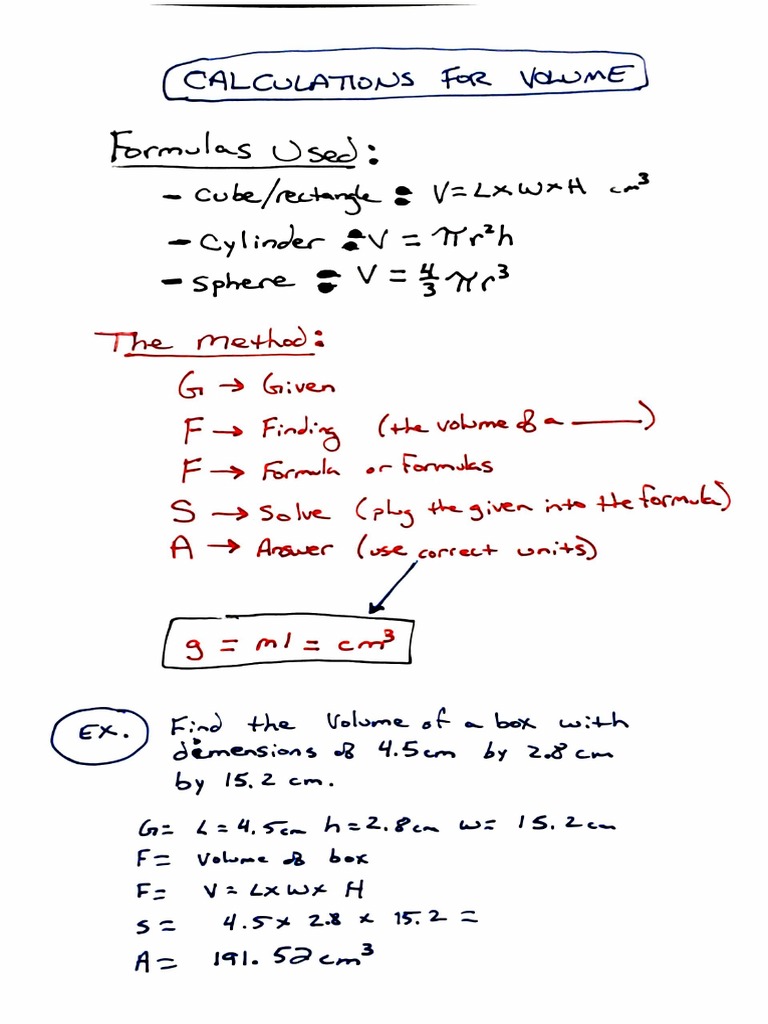 CALCULATIONS FOR VOLUME
Formulas Used:
- Cube/rectangle : V = L x W x H cm³
- Cylinder : V = πr²h
- Sphere : V = 4/3 πr³
The Method:
G → Given
F → Finding (the volume of a ———)
F → Formula or Formulas
S → Solve (plug the given into the formula)
A → Answer (use correct units)
g = ml = cm³
EX. Find the Volume of a box with
demensions of 4.5cm by 2.8 cm
by 15.2 cm.
G= L = 4.5cm h = 2.8cm w = 15.2cm
F= Volume of box
F= V = L x W x H
S= 4.5 x 2.8 x 15.2 =
A= 191.52 cm³